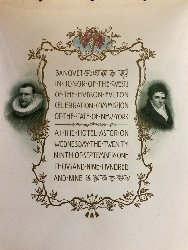 BANQVET
IN·HONOR·OF·THE·GVESTS
OF·THE·HVDSON·FVLTON
CELEBRATION·COMMISSION
OF·THE·STATE·OF·NEW·YORK
AT·THE·HOTEL·ASTOR·ON
WEDNESDAY·THE·TWENTY
NINTH·OF·SEPTEMBER·ONE
THOVSAND·NINE·HVNDRED
AND·NINE